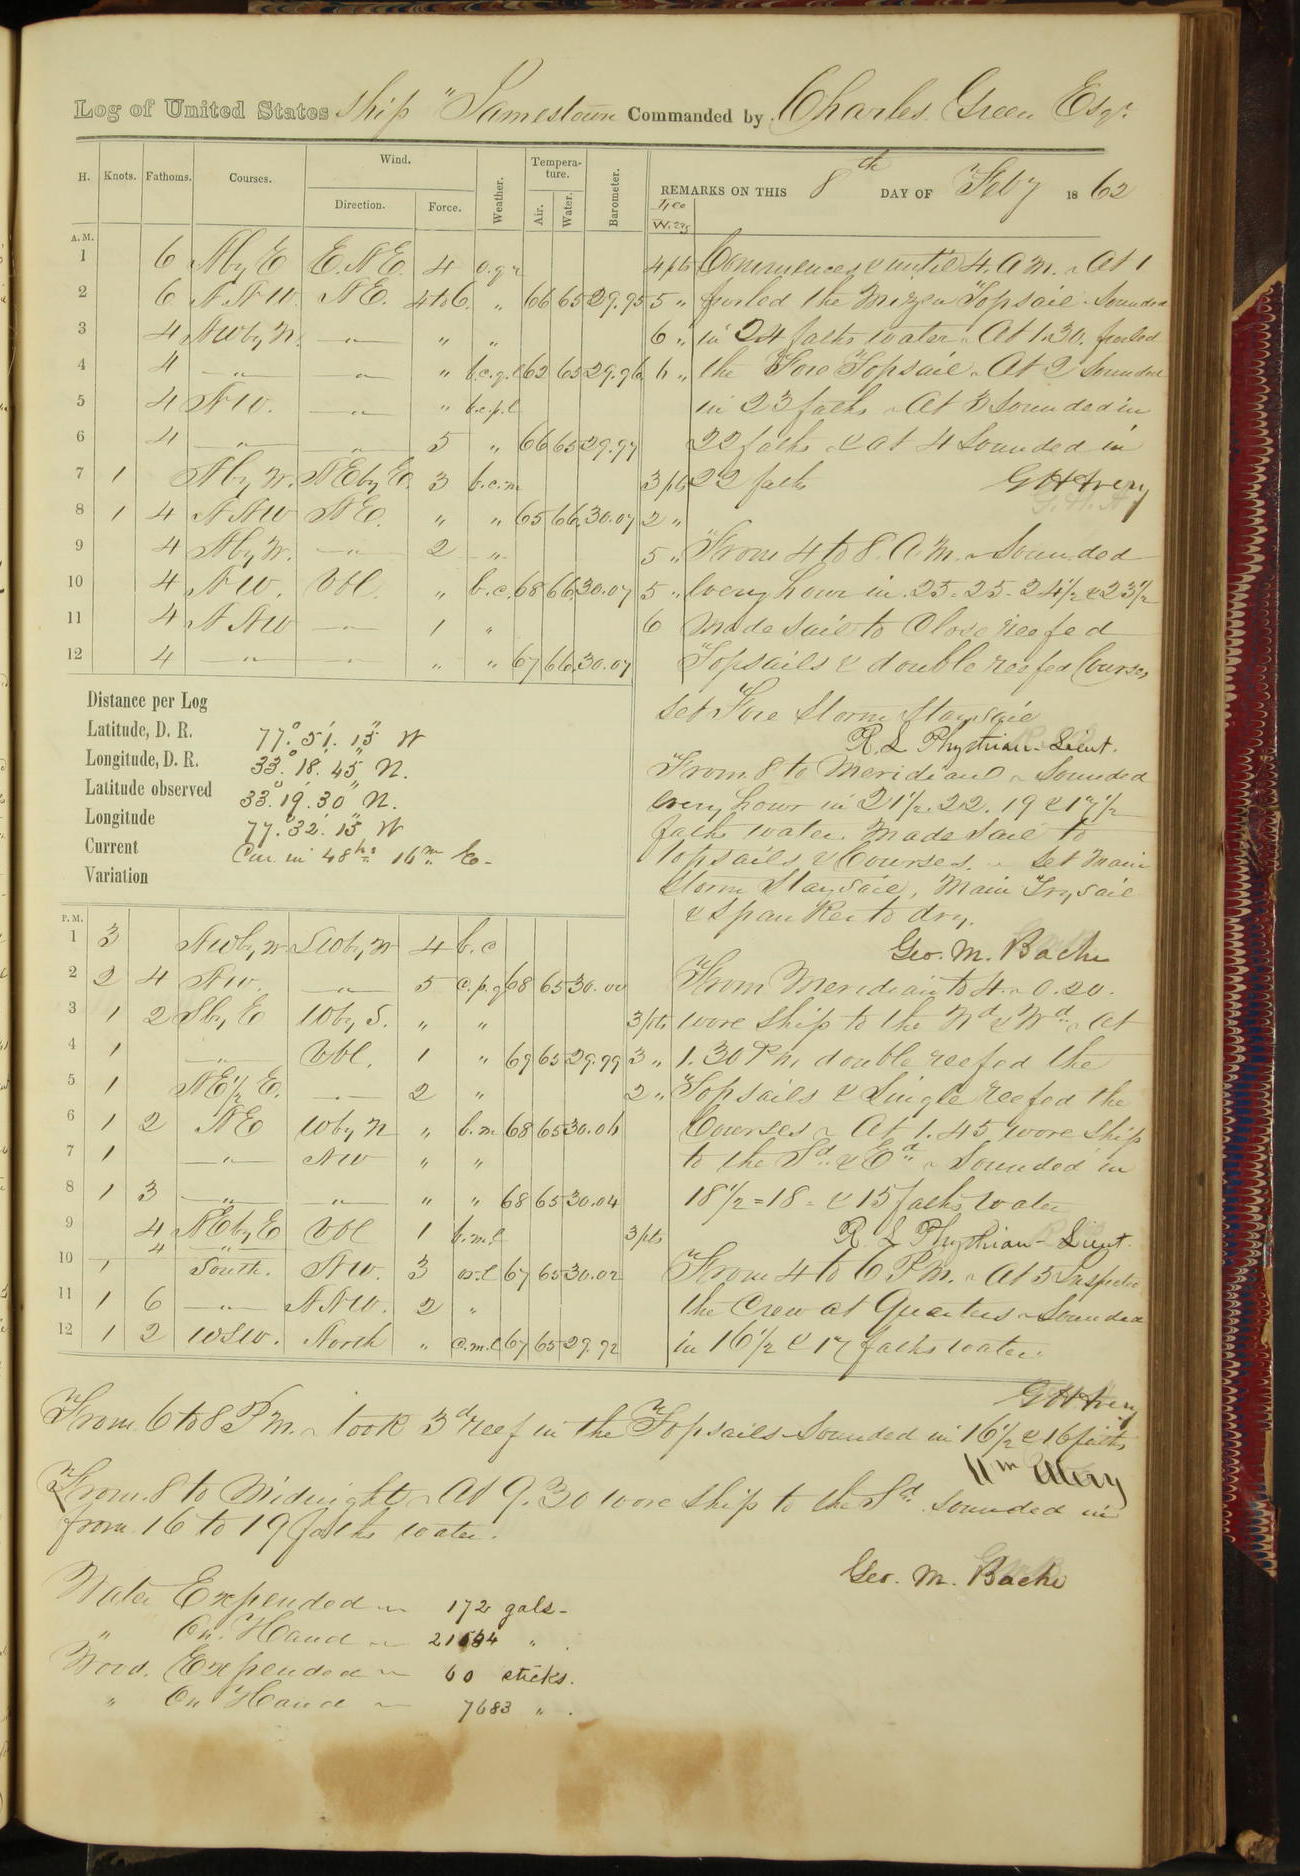 Log of United States Ship "Jamestown Commanded by Charles Green Esqr.
H. Knots. Fathoms. Courses. Wind. Direction. Force. Weather. Temperature. Air. Water. Barometer. REMARKS ON THIS 8th DAY OF Feby 1862
A.M.
1 6 N by E E.N.E. 4 o.q.r 4 pts
2 6 N N W. N E. 4 to 6 " 66 65 29.95 5 "
3 4 NW by N. " " " 6 "
4 4 " " " b.c.q.l 62 65 29.96 6 "
5 4 N W. " " b.c.p.l
6 4 " " 5 " 66 65 29.97
7 1 N by W. NE by E. 3 b.c.m 3 pts
8 1 4 N N W N E. " " 65 66 30.07 2 "
9 4 N by W. " 2 " 5 "
10 4 N W. Vbl. " b.c. 68 66 30.07 5 "
11 4 N N W " 1 " 6
12 4 " " " " 67 66 30.07
Commences & until 4. A M. At 1
furled the Mizen Topsail. Sounded
in 24 faths water. At 1.30. furled
the Fore Topsail. At 2 Sounded
in 23 faths. At 3 Sounded in
22 faths & at 4 Sounded in
22 faths
From 4 to 8. A.M. Sounded
every hour in. 25-25-24 1/2 & 23 1/2
Made sail to Close reefed
Topsails & double reefed Courses
set Fore Storm Staysail
R. L Phythian- Lieut.
From 8 to Meridian. Sounded
every hour in 21 1/2. 22. 19 & 17 1/2
faths water. Made Sail to
topsails & Courses. Set Main
Storm Staysail, Main Trysail
& Spanker to dry.
Geo. M. Bache
Distance per Log
Latitude, D. R. 77° 51' 15" W
Longitude, D. R. 33° 18' 45" N.
Latitude observed 33° 19' 30" N.
Longitude 77° 32' 15" W
Current Cur. in 48 hs 16 m E-
Variation
P.M.
1 3 NW by W SW by W 4 b.c
2 2 4 N W. " 5 c.p.q 68 65 30.00
3 1 2 S by E W by S. " " 3 pts
4 1 " Vbl. 1 " 69 65 29.99 3 "
5 1 NE 1/2 E. " 2 " 2 "
6 1 2 NE W by N " b.m 68 65 30.06
7 1 " NW " "
8 1 3 " " " " 68 65 30.04
9 4 NE by E Vbl 1 b.m.l 3 pts
10 1 4 " South. N W. 3 67 65 30.02
11 1 6 " N N W. 2 "
12 1 2 WSW. North " c.m.l 67 65 29.92
From Meridian to 4. 0.20.
wore ship to the Nd & Wd. At
1.30 P M double reefed the
Topsails & Single reefed the
Courses. At 1.45 wore Ship
to the Sd & Ed. Sounded in
18 1/2 = 18 = & 15 faths water
R. L Phythian- Lieut.
From 4 to 6 P M. At 5 Inspected
the Crew at Quarters. Sounded
in 16 1/2 & 17 faths water.
From 6 to 8 P M. took 3d reef in the Topsails Sounded in 16 1/2 & 16 faths
From 8 to Midnight. At 9.30 wore Ship to the Sd. Sounded in
from 16 to 19 faths water.
Geo. M. Bache
Water Expended 172 gals-
" On Hand "
Wood. Expended 60 sticks.
" On Hand 7683 " .